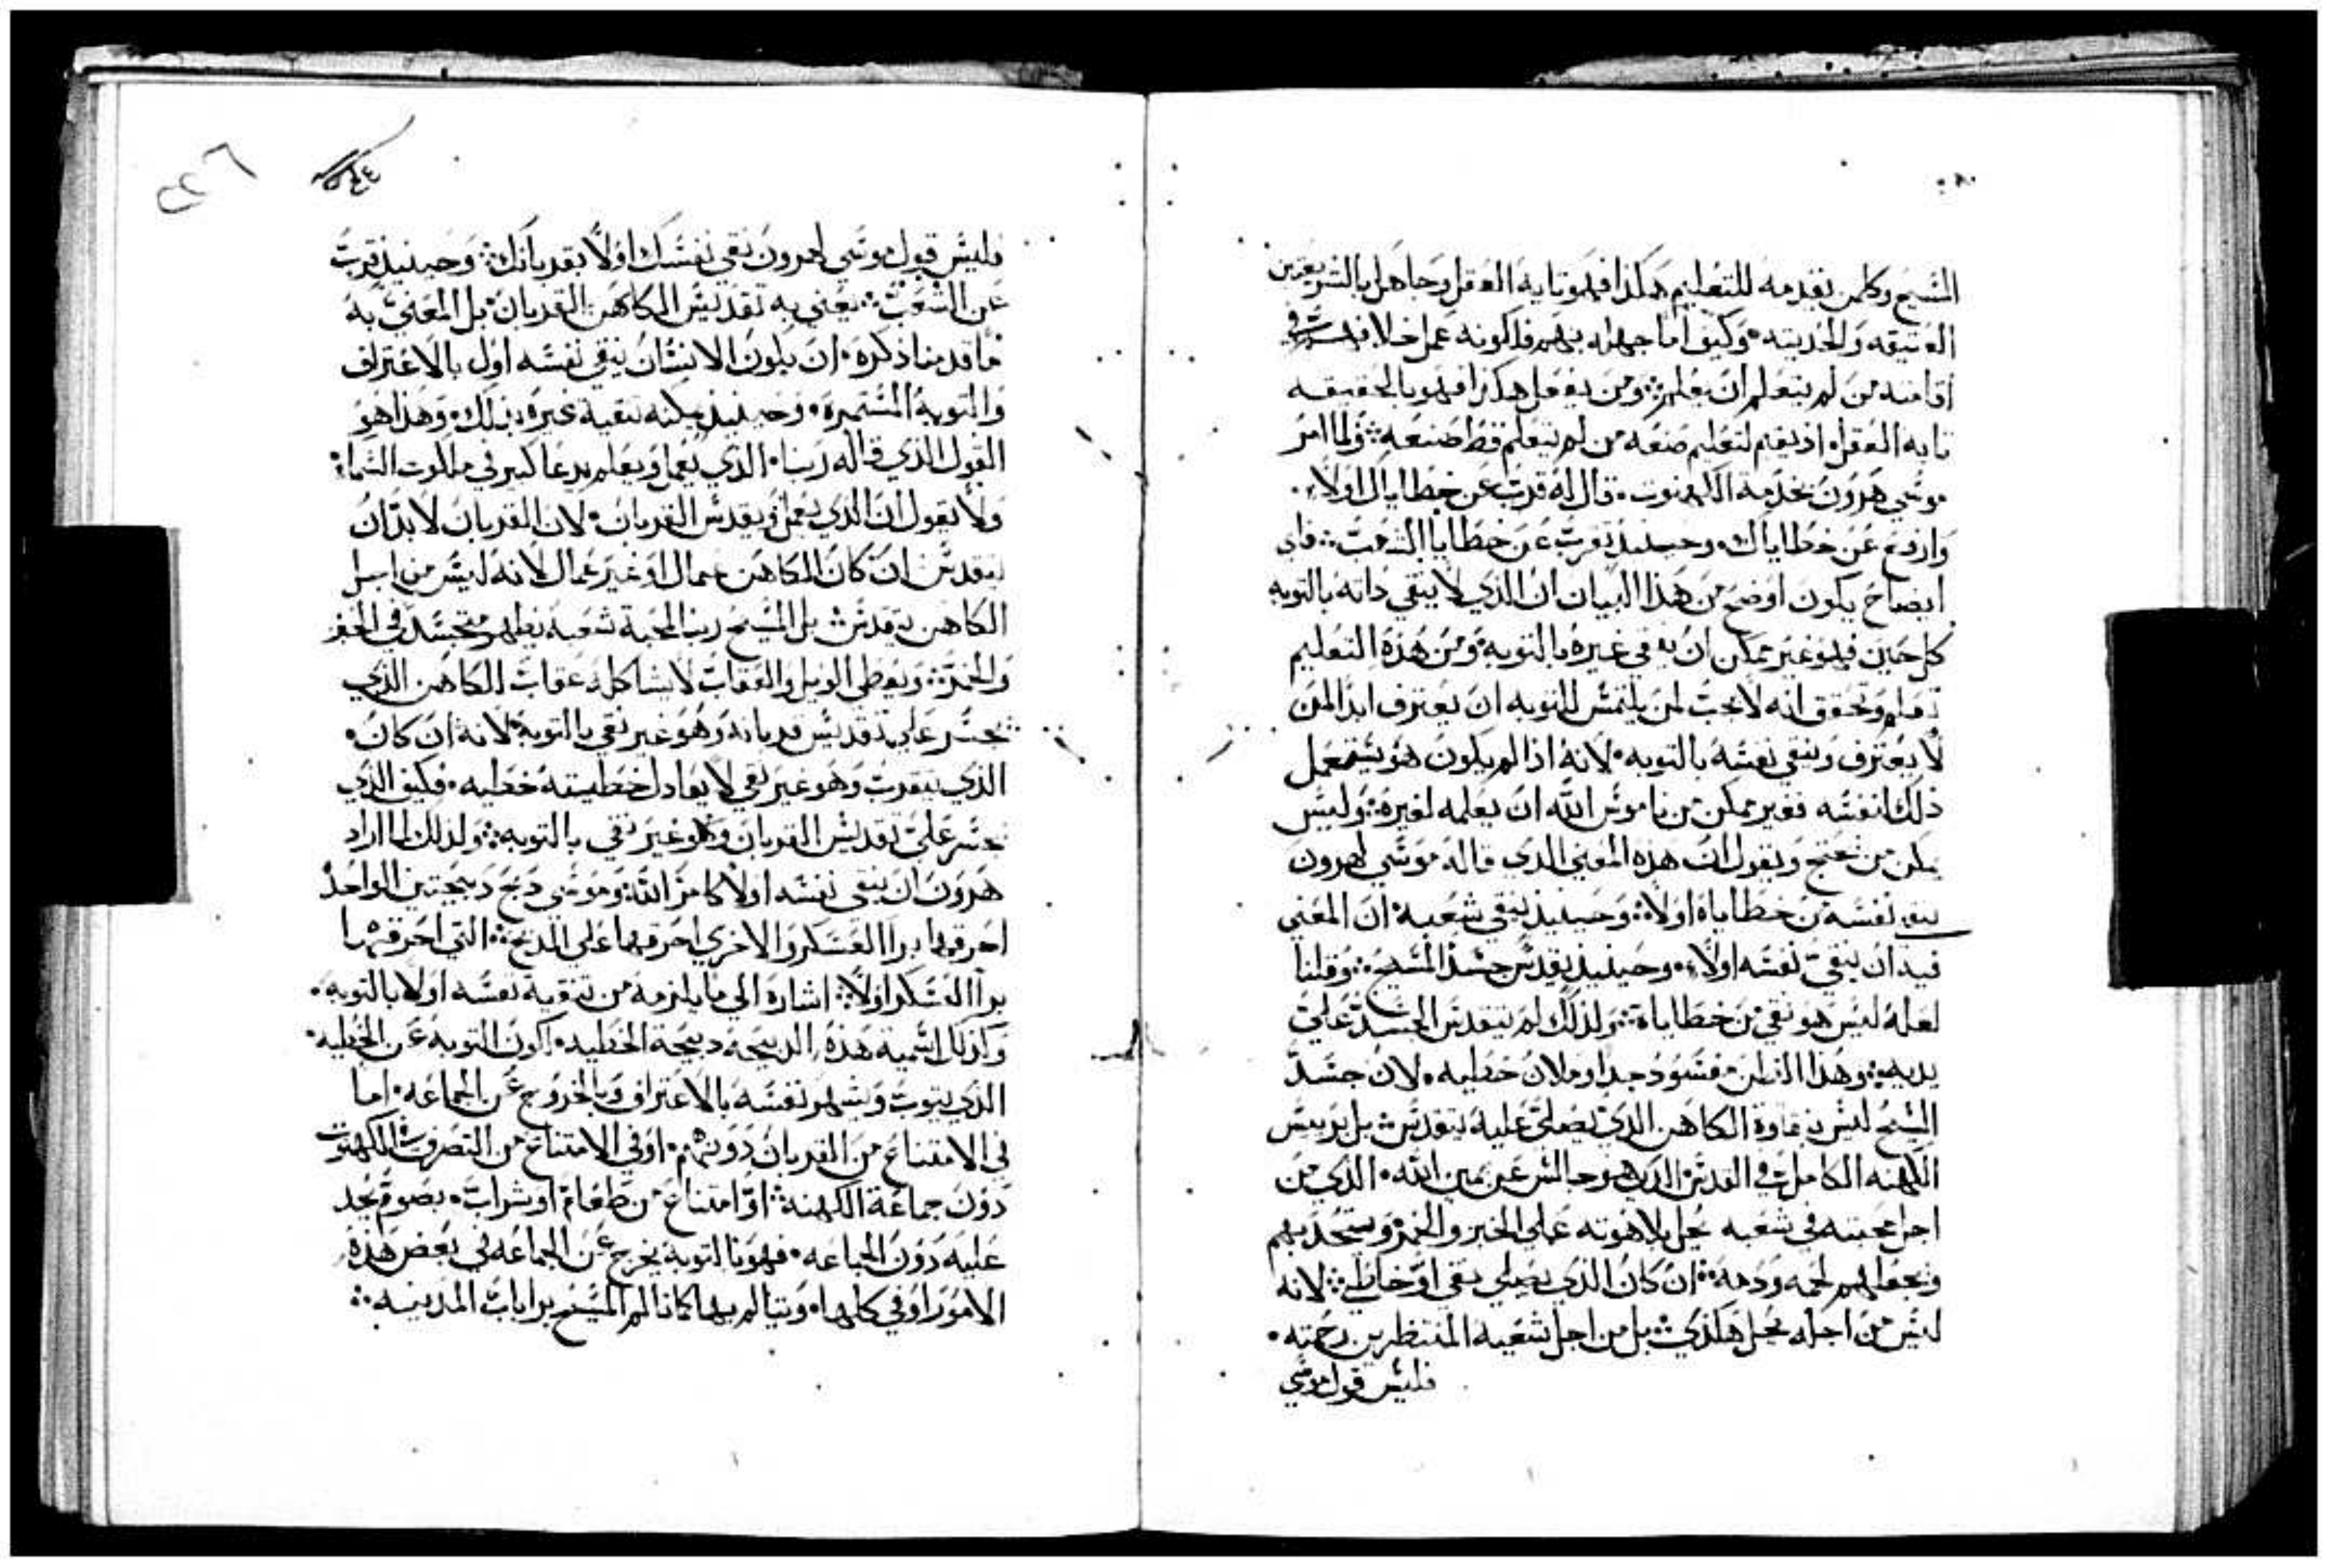 المسيح وكلمن يقدمه للتعليم هكذا فهو تايه العقل وجاهل بالشريعتين
العتيقه والحديثه وكيف اما جهله بهم فلكونه عمل خلافهم في
اقامته من لم يتعلم ان يعلم ومن يفعل هكذا فهو بالحقيقه
تايه العقل اذ يقيم لتعليم صنعه من لم يتعلم قط صنعه ولما امر
موسي هرون بخدمة الكهنوت قال له قرب عن خطاياك اولا
وارفع عن خطاياك وحينيذ تقرب عن خطايا الشعب فاي
ايضاح يكون اوضح من هذا البيان ان الذي لا ينقي داته بالتوبه
كل حين فهو غير ممكن ان ينقي غيره بالتوبه ومن هذه التعليم
نفهم ونحقق انه لا يجب لمن يلتمس التوبه ان يعترف ابدا لمن
لا يعترف وينقي نفسه بالتوبه لانه اذا لم يكون هو يستعمل
ذلك لنفسه فغير ممكن من ناموس الله ان يعلمه لغيره وليس
يمكن من يحتج ويقول ان هذه المعني الذي قاله موسي لهرون
ينقي نفسه من خطاياه اولا وحينيذ ينقي شعبه ان المعني
فيه ان ينقي نفسه اولا وحينيذ يقدس جسد المسيح وقلنا
لعله ليس هو نقي من خطاياه ولذلك لم يتقدس الجسد علي
يديه وهذا الظن مفسود جدا وملان خطيه لان جسد
المسيح ليس بنقاوة الكاهن الذي يصلي عليه يتقدس بل بريس
الكهنه الكامل في القدس الذي هو جالس عن يمين الله الذي من
اجل محبته في شعبه يحل بلاهوته علي الخبز والخمر ويتحد بهم
ويجعلهم لحمه ودمه ان كان الذي يصلي نقي او خاطي لانه
ليس من اجله يحل هكذي بل من اجل شعبه المنتظرين رحمته
فليس قول موسي
٢٢٦
فليس قول موسي لهرون نقي نفسك اولا بقربانك وحينيذ قرب
عن الشعب يعني به تقديس الكاهن القربان بل المعني به
ما قدمنا ذكره ان يكون الانسان ينقي نفسه اول بالاعتراف
والتوبه المستمره وحينيذ يمكنه تنقية غيره بذلك وهذا هو
القول الذي قاله ربنا الذي يعمل ويعلم يدعا كبير في ملكوت السماء
ولا يقول ان الذي يعمل يقدس القربان لان القربان لابد ان
يتقدس ان كان الكاهن عمال او غير عمال لانه ليس من اجل
الكاهن يتقدس بل المسيح ربنا لمحبة شعبه يظهر متجسد في الخبز
والخمر ويعطي الويل والعقاب لا يشاكله عقاب الكاهن الذي
يجسر علي تقديس قربانه وهو غير نقي بالتوبه لانه ان كان
الذي يتقرب وهو غير نقي لا يعادل خطيته خطيه فكيف الذي
يجسر علي تقديس القربان وهو غير نقي بالتوبه ولذلك لما اراد
هرون ان ينقي نفسه اولا كامر الله وموسي دبح دبيحتين الواحده
احرقها برا العسكر والاخري احرقها علي المدبح التي احرقها
برا العسكر اولا اشاره الي ما يلزمه من تنقية نفسه اولا بالتوبه
وكذلك اسمية هذه الدبيحه دبيحة الخطيه لكون التوبه عن الخطيه
الذي يتوب ويشهر نفسه بالاعتراف وبالخروج عن الجماعه اما
في الامتناع من القربان دونهم او في الامتناع من التصرف بالكهنوت
دون جماعة الكهنة او امتناع من طعام او شراب بصوم يجد
عليه دون الجماعه فهو بالتوبه يخرج عن الجماعه في بعض هذه
الامور او في كلها ويتالم بها كما تالم المسيح برا باب المدينه